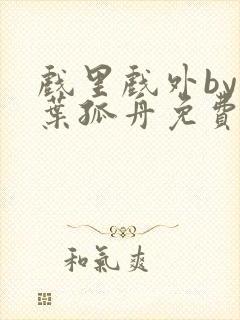 戲里戲外by
葉孤舟免費
和氣爽